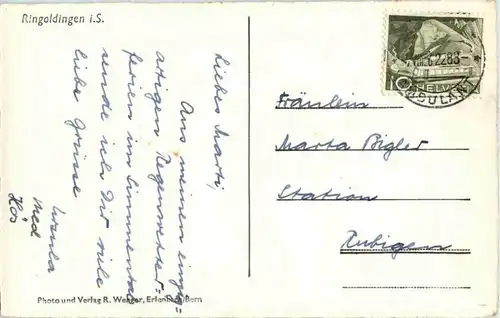 Ringoldingen i.S.
Liebes Marti,
Aus meinen einzig-
artigen Regenwetter-
ferien im Simmental
sende ich Dir viele
liebe Grüsse
Ursula
HELVETIA
AMBULANT
Fräulein
Marta Bigler
Station
Rubigen
Photo und Verlag R. Wenger, Erlenbach/Bern